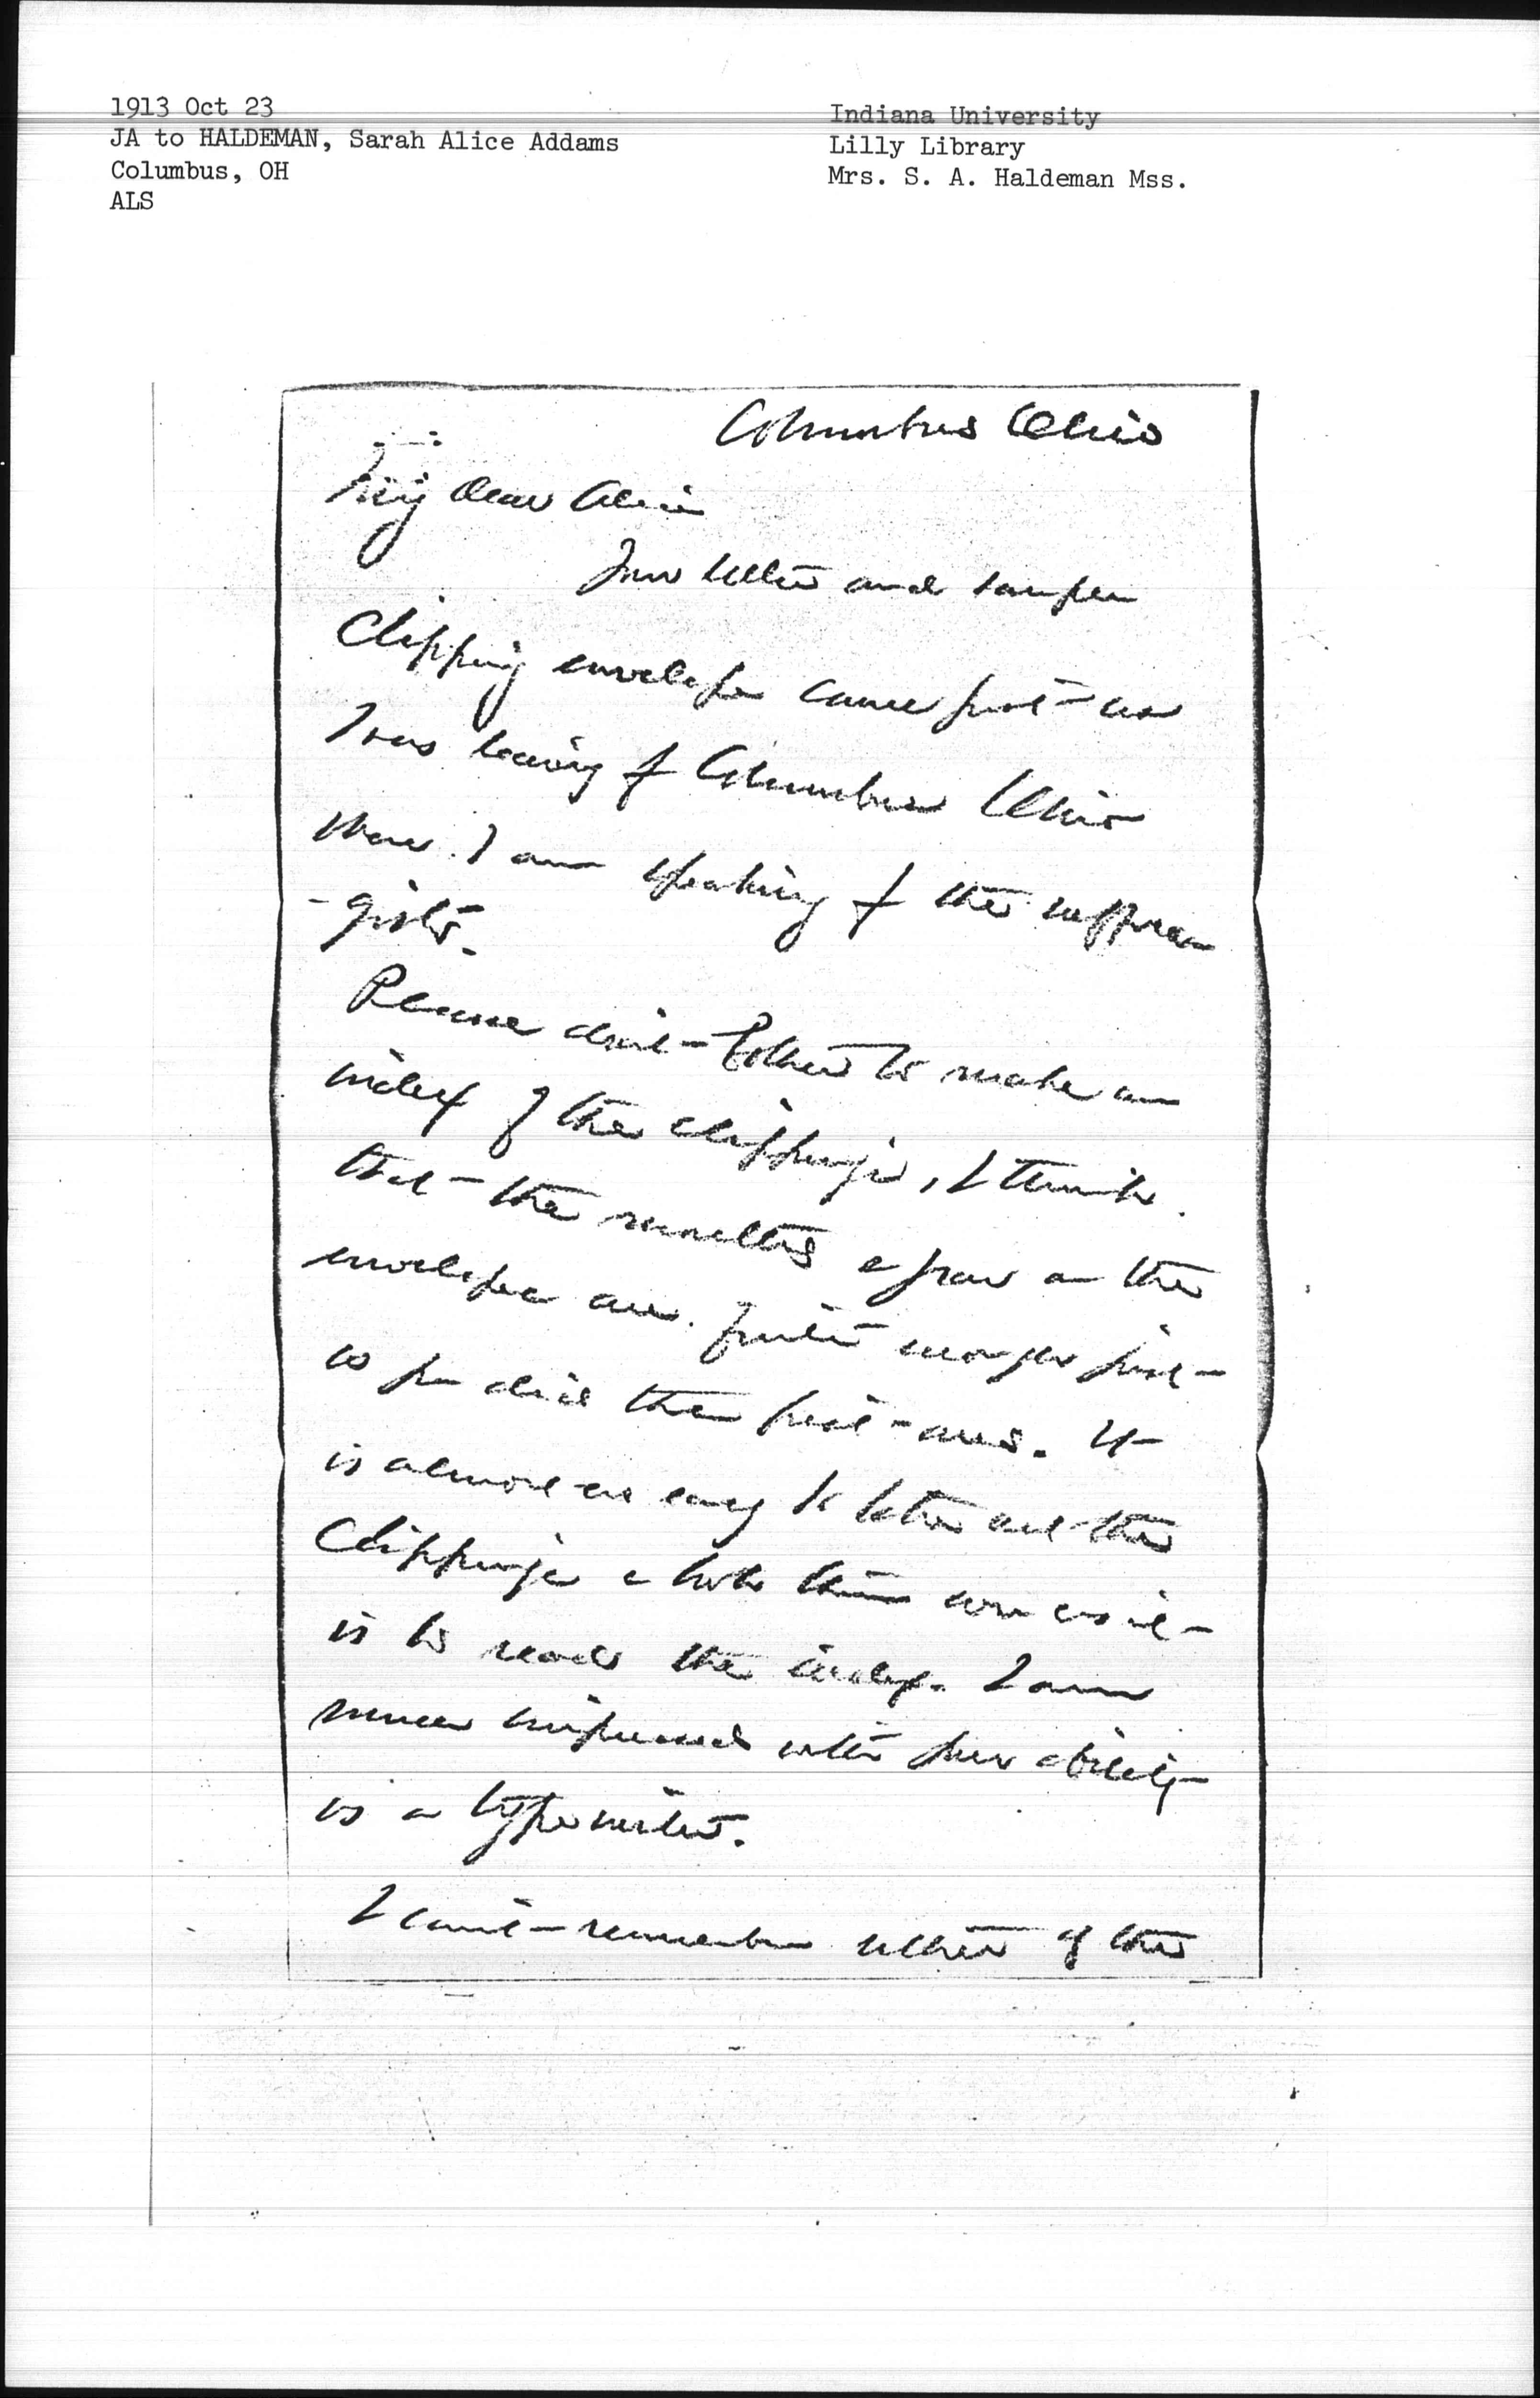 1913 Oct 23
JA to HALDEMAN, Sarah Alice Addams
Columbus, OH
ALS
Indiana University
Lilly Library
Mrs. S. A. Haldeman Mss.
Columbus Ohio
My dear Alice
Your letter and sample
Clipping envelope came just as
I was leaving for Columbus Ohio
where I am speaking for the suffra
-gists.
Please don't bother to make an
index of the clippings, I think
that the months & year on the
envelope are quite enough just
as you did the first ones. It
is almost as easy to take out the
clippings & look them over as it
is to read the index. I am
much impressed with your ability
as a typewriter.
I can't remember whether